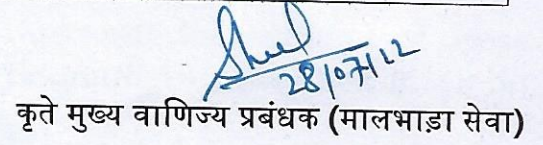 28/07/22
कृते मुख्य वाणिज्य प्रबंधक (मालभाड़ा सेवा)